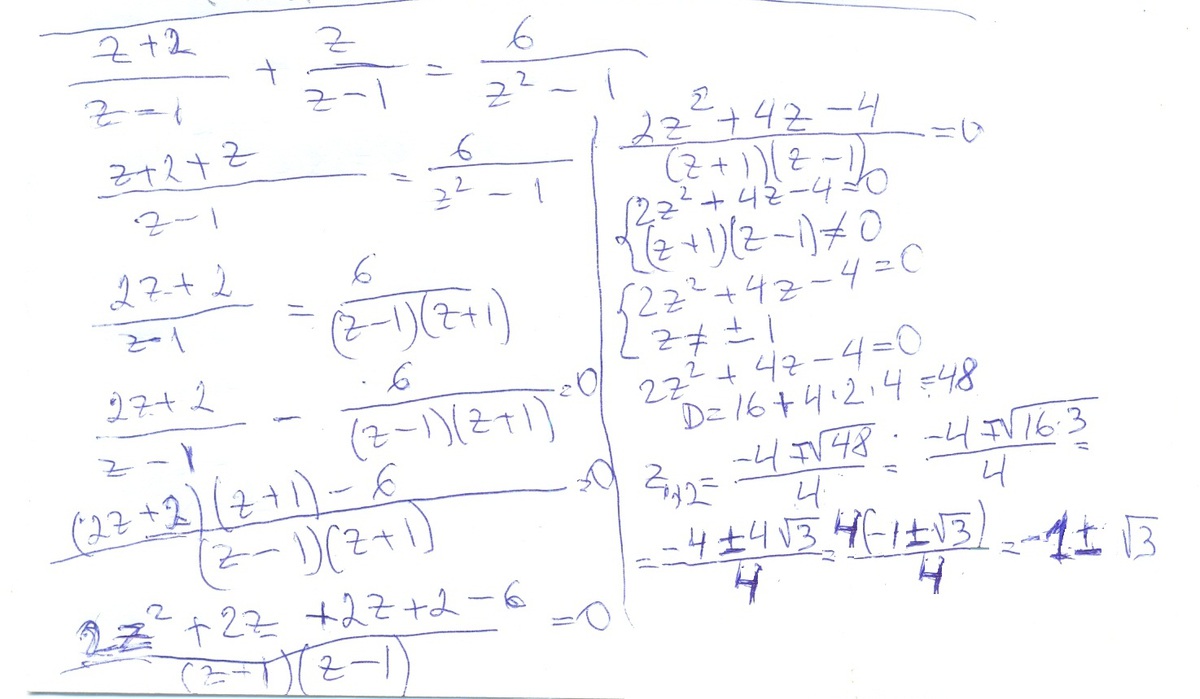 (z+2)/(z-1) + z/(z-1) = 6/(z² - 1)
(z+2+z)/(z-1) = 6/(z² - 1)
(2z+2)/(z-1) = 6/((z-1)(z+1))
(2z+2)/(z-1) - 6/((z-1)(z+1)) = 0
((2z+2)(z+1) - 6)/((z-1)(z+1)) = 0
(2z² + 2z + 2z + 2 - 6)/((z+1)(z-1)) = 0
(2z² + 4z - 4)/((z+1)(z-1)) = 0
{ 2z² + 4z - 4 = 0
(z+1)(z-1) ≠ 0
{ 2z² + 4z - 4 = 0
z ≠ ± 1
2z² + 4z - 4 = 0
D = 16 + 4·2·4 = 48
z₁,₂ = (-4 ∓ √48)/4 = (-4 ∓ √(16·3))/4 =
= (-4 ± 4√3)/4 = 4(-1 ± √3)/4 = -1 ± √3